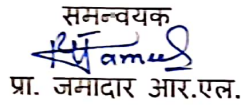 समन्वयक
प्रा. जमादार आर.एल.